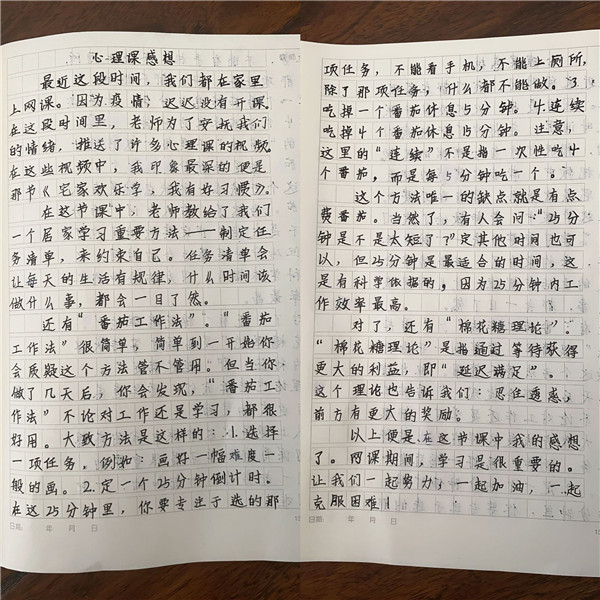 心理课感想
最近这段时间，我们都在家里
上网课。因为疫情，迟迟没有开课。
在这段时间里，老师为了安抚我们
的情绪，推送了许多心理课的视频。
在这些视频中，我印象最深的便是
那节《宅家欢乐学，我有好习惯》。
在这节课中，老师教给了我们
一个居家学习重要方法——制定任
务清单，来约束自己。任务清单会
让每天的生活有规律，什么时间该
做什么事，都会一目了然。
还有“番茄工作法”。“番茄
工作法”很简单，简单到一开始你
会质疑这个方法管不管用。但当你
做了几天后，你会发现，“番茄工
作法”不论对工作还是学习，都很
好用。大致方法是这样的：1.选择
一项任务，例如：画好一幅难度一
般的画。2.定一个25分钟倒计时。
在这25分钟里，你要专注于选的那
日期: 年 月 日
项任务，不能看手机，不能上厕所，
除了那项任务，什么都不能做。3.
吃掉一个番茄休息5分钟。4.连续
吃掉4个番茄休息15分钟。注意，
这里的“连续”不是指一次性吃4
个番茄，而是每5分钟吃一个。
这个方法唯一的缺点就是有点
费番茄。当然了，有人会问：“25分
钟是不是太短了？”定其他时间也可
以，但25分钟是最适合的时间，这
是有科学依据的，因为25分钟内工
作效率最高。
对了，还有“棉花糖理论”。
“棉花糖理论”是指通过等待获得
更大的利益，即“延迟满足”。
这个理论也告诉我们：忍住诱惑，
前方有更大的奖励。
以上便是在这节课中我的感想
了。网课期间，学习是很重要的。
让我们一起努力，一起加油，一起
克服困难！
日期: 年 月 日